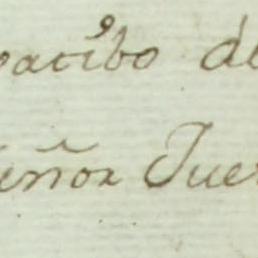 pacibo de
eñor Juez